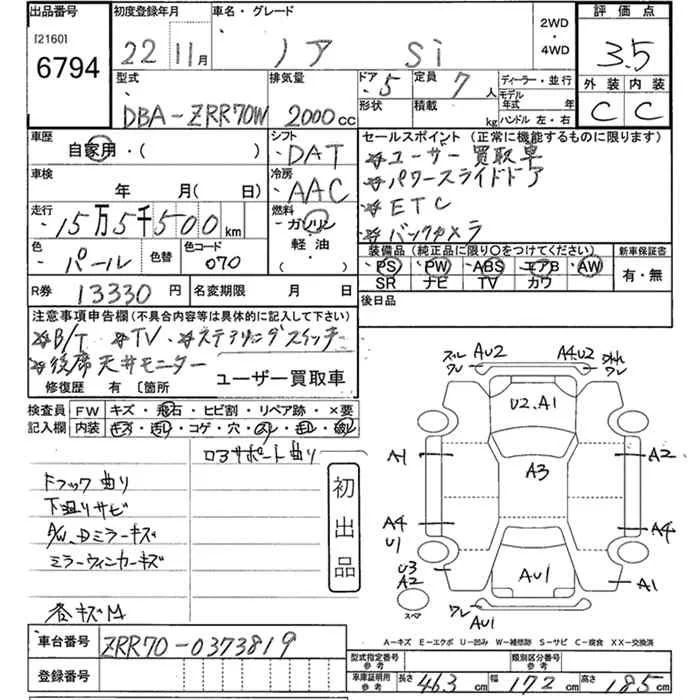 出品番号 初度登録年月 車名・グレード 2WD ・ 4WD 評価点
[2160]
6794 22 11月 ノア Si 3.5
型式 排気量 ドア 5 定員 7人 ディーラー・並行 外装 内装
DBA-ZRR70W 2000cc 形状 積載 kg モデル年式 年式 ハンドル 左・右 C C
車歴 自家用・( ) シフト DAT セールスポイント (正常に機能するものに限ります)
☆ユーザー買取車
車検 年 月( 日) 冷房 AAC ☆パワースライドドア
☆ETC
走行 15万5千500km 燃料 ガソリン ・ 軽油 ・( ) ☆バックカメラ
色 パール 色替 色コード 070 装備品 (純正品に限り○をつけてください) 新車保証書
PS PW ABS エアB AW 有・無
SR ナビ TV カワ
R券 13330円 名変期限 月 日 後日品
注意事項申告欄 (不具合内容等は具体的に記入して下さい)
☆B/T ☆TV ☆ステアリングスイッチ
☆後席天井モニター
修復歴 有 〔箇所 ユーザー買取車
検査員記入欄 FW キズ・飛石・ヒビ割・リペア跡・×要
内装 キズ・汚れ・コゲ・穴・
ロアサポート曲り
Fフック曲り
下廻りサビ
A/W、Dミラーキズ
ミラーウィンカーキズ
各キズM
初出品
AU2 A4U2 ワレ
ワレ
U2.A1
A1 A3 A2
A4 U1 A4
U3 A2 AU1 A1
スペア ワレ AU1
A-キズ E-エクボ U-凹み W-補修跡 S-サビ C-腐食 XX-交換済
車台番号 ZRR70-0373819
型式指定番号 参考 類別区分番号 参考
登録番号 車庫証明用 参考 長さ 463cm 幅 172cm 高さ 185cm